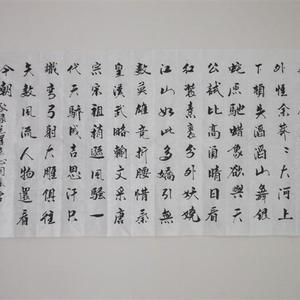 外惟余莽〻大河上
下頓失滔〻山舞銀
蛇原馳蠟象欲與天
公試比高須晴日看
紅裝素裹分外妖嬈
江山如此多嬌引無
數英雄竟折腰惜秦
皇漢武略輸文采唐
宗宋祖稍遜風騷一
代天驕成吉思汗只
識彎弓射大雕俱往
矣數風流人物還看
今朝